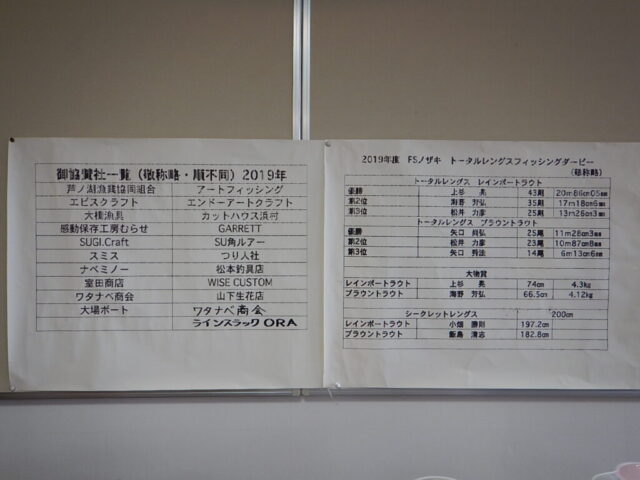 御協賛社一覧（敬称略・順不同）2019年
芦ノ湖漁業協同組合 アートフィッシング
エビスクラフト エンドーアートクラフト
大橋漁具 カットハウス浜村
感動保存工房むらせ GARRETT
SUGI.Craft SU角ルアー
スミス つり人社
ナベミノー 松本釣具店
室田商店 WISE CUSTOM
ワタナベ商会 山下生花店
大場ボート ワタナベ商会
ラインスラック ORA
2019年度 FSノザキ トータルレングスフィッシングダービー
（敬称略）
トータルレングス レインボートラウト
優勝 上谷 晃 43尾 20m86cm05㎜
第2位 海野 芳弘 35尾 17m18cm6㎜
第3位 松井 力彦 25尾 13m26cm3㎜
トータルレングス ブラウントラウト
優勝 矢口 尚弘 25尾 11m28cm3㎜
第2位 松井 力彦 23尾 10m87cm8㎜
第3位 矢口 14尾 6m13cm6㎜
大物賞
レインボートラウト 上谷 晃 74cm 4.3kg
ブラウントラウト 海野 芳弘 66.5cm 4.12kg
シークレットレングス 200cm
レインボートラウト 小畑 勝則 197.2cm
ブラウントラウト 飯島 清志 182.8cm